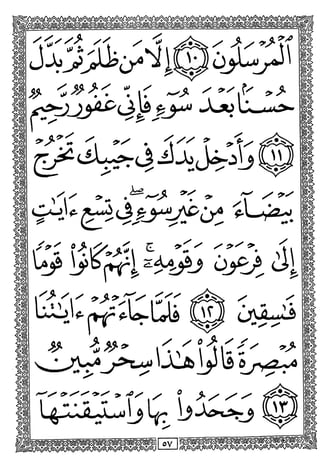 ٱلْمُرْسَلُونَ ١٠ إِلَّا مَن ظَلَمَ ثُمَّ بَدَّلَ
حُسْنَۢا بَعْدَ سُوٓءٍ فَإِنِّي غَفُورٌ رَّحِيمٌ
١١ وَأَدْخِلْ يَدَكَ فِي جَيْبِكَ تَخْرُجْ
بَيْضَآءَ مِنْ غَيْرِ سُوٓءٍۖ فِي تِسْعِ ءَايَٰتٍ
إِلَىٰ فِرْعَوْنَ وَقَوْمِهِۦٓۚ إِنَّهُمْ كَانُوا۟ قَوْمًا
فَٰسِقِينَ ١٢ فَلَمَّا جَآءَتْهُمْ ءَايَٰتُنَا
مُبْصِرَةً قَالُوا۟ هَٰذَا سِحْرٌ مُّبِينٌ
١٣ وَجَحَدُوا۟ بِهَا وَٱسْتَيْقَنَتْهَآ
٥٧